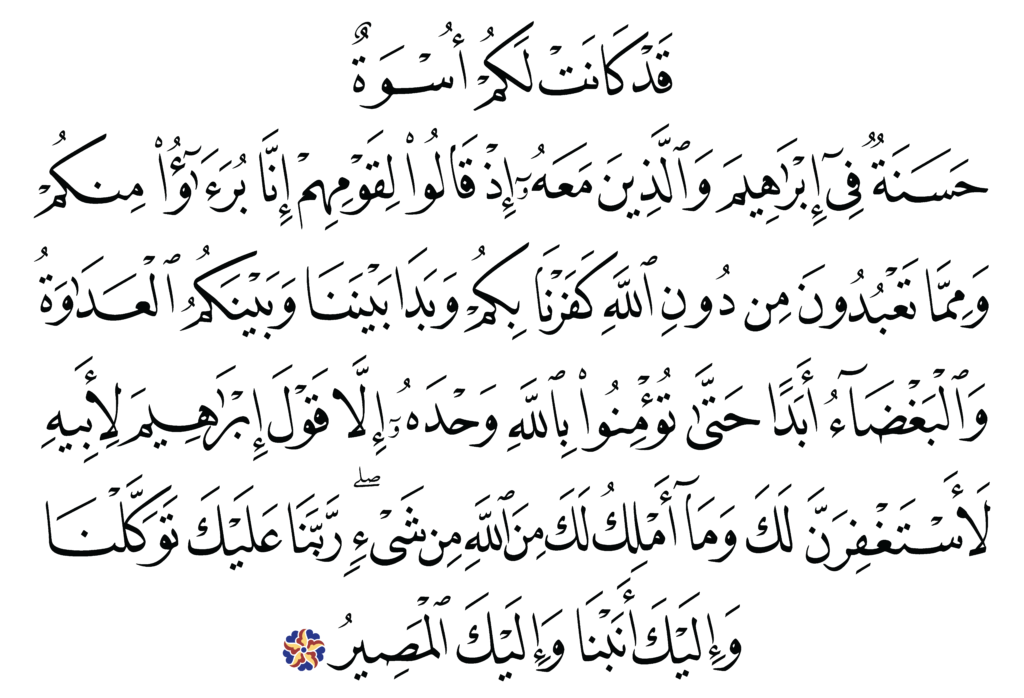 قَدْ كَانَتْ لَكُمْ أُسْوَةٌ
حَسَنَةٌ فِىٓ إِبْرَٰهِيمَ وَٱلَّذِينَ مَعَهُۥٓ إِذْ قَالُوا۟ لِقَوْمِهِمْ إِنَّا بُرَءَٰٓؤُا۟ مِنكُمْ
وَمِمَّا تَعْبُدُونَ مِن دُونِ ٱللَّهِ كَفَرْنَا بِكُمْ وَبَدَا بَيْنَنَا وَبَيْنَكُمُ ٱلْعَدَٰوَةُ
وَٱلْبَغْضَآءُ أَبَدًا حَتَّىٰ تُؤْمِنُوا۟ بِٱللَّهِ وَحْدَهُۥٓ إِلَّا قَوْلَ إِبْرَٰهِيمَ لِأَبِيهِ
لَأَسْتَغْفِرَنَّ لَكَ وَمَآ أَمْلِكُ لَكَ مِنَ ٱللَّهِ مِن شَىْءٍ ۖ رَّبَّنَا عَلَيْكَ تَوَكَّلْنَا
وَإِلَيْكَ أَنَبْنَا وَإِلَيْكَ ٱلْمَصِيرُ